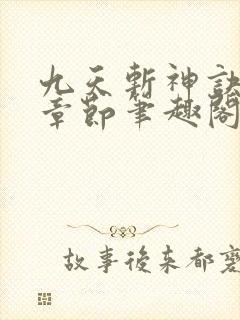 九天斬神訣
章節筆趣閣
故事後來都